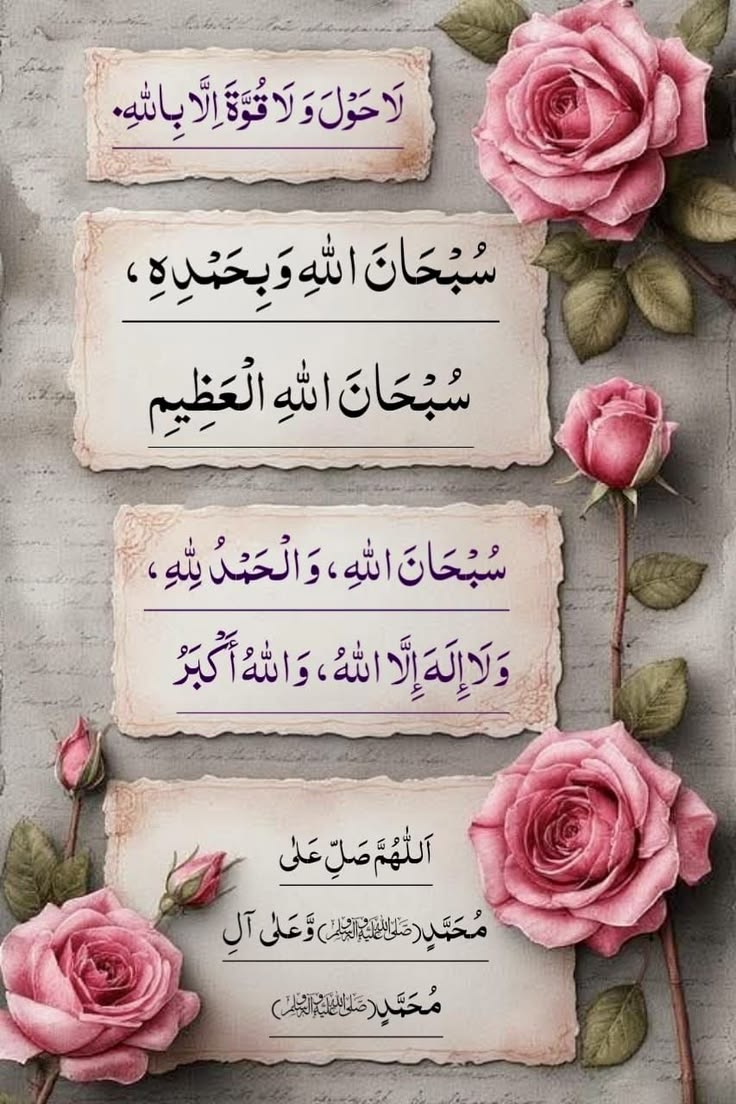 لَا حَوْلَ وَ لَا قُوَّةَ اِلَّا بِاللهِ.
سُبْحَانَ اللهِ وَبِحَمْدِهِ ،
سُبْحَانَ اللهِ الْعَظِيمِ
سُبْحَانَ اللهِ، وَالْحَمْدُ لِلهِ،
وَلَا إِلَهَ إِلَّا اللهُ، وَاللهُ أَكْبَرُ
اَللّٰهُمَّ صَلِّ عَلٰى
مُحَمَّدٍ(صَلَى اللهُ عَلَيْهِ وَآلِهِ وَسَلَّمَ) وَّعَلٰى آلِ
مُحَمَّدٍ(صَلَى اللهُ عَلَيْهِ وَآلِهِ وَسَلَّمَ)